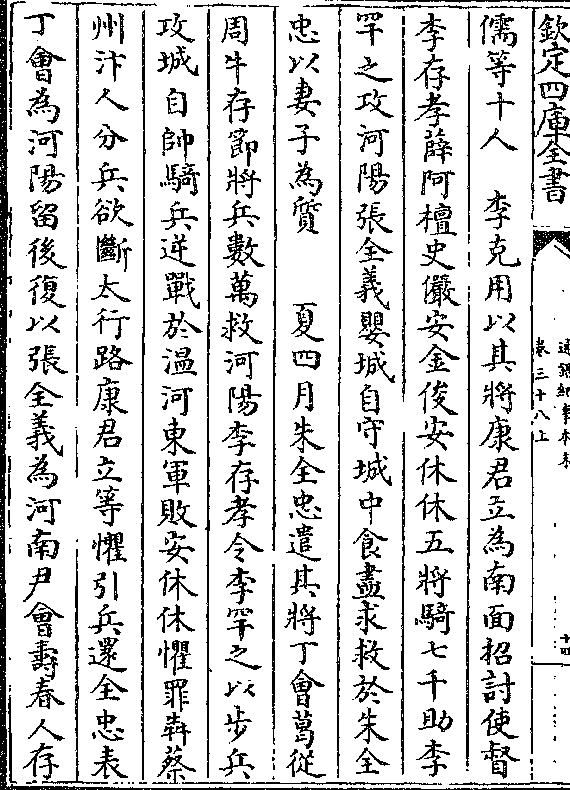 欽定四庫全書
通鑑紀事本末
卷三十八上
十四
儒等十人　李克用以其將康君立為南面招討使督
李存孝薛阿檀史儼安金俊安休休五將騎七千助李
罕之攻河陽張全義嬰城自守城中食盡求救於朱全
忠以妻子為質　夏四月朱全忠遣其將丁會葛從
周牛存節將兵數萬救河陽李存孝令李罕之以步兵
攻城自帥騎兵逆戰於溫河東軍敗安休休懼罪奔蔡
州汴人分兵欲斷太行路康君立等懼引兵還全忠表
丁會為河陽留後復以張全義為河南尹會壽春人存